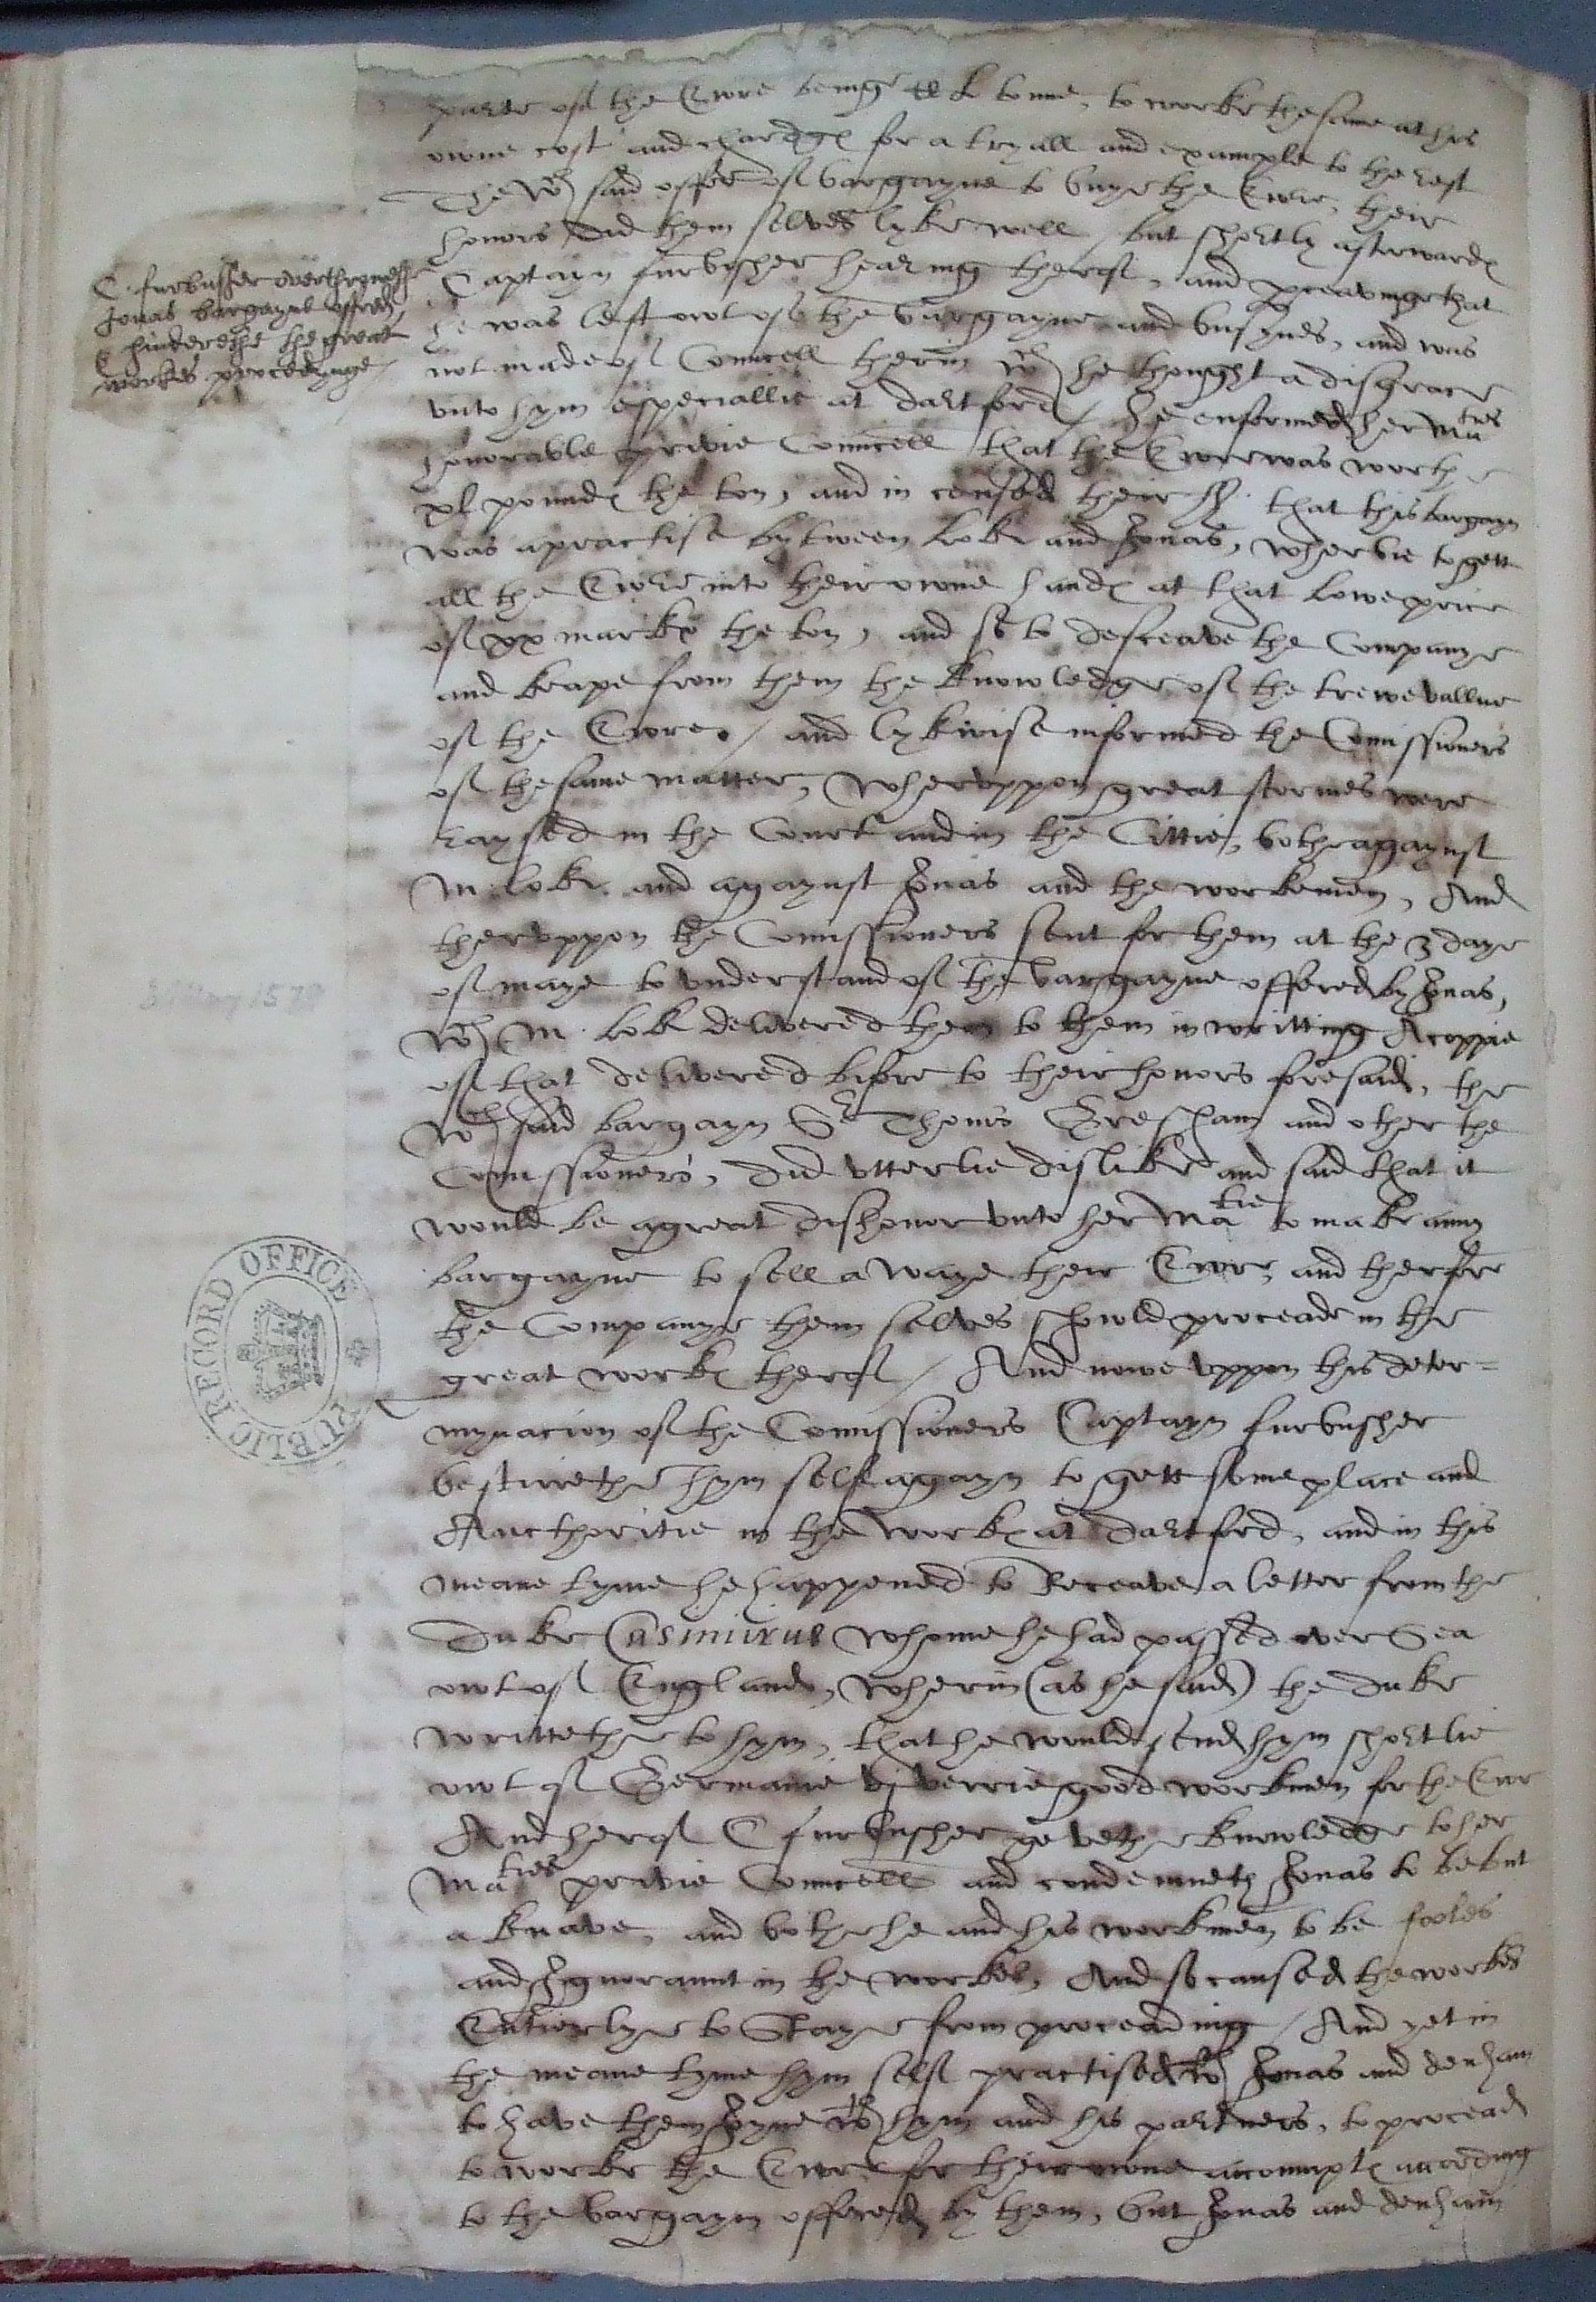 parte of the Ewre being to tonne, to worke the same at his
owne cost and chardges for a tryall and example to the rest
The wch said offer of bargayne to buye the Ewre, their
honors did them selves lyke well / but shortly afterwardes
Captayn furbisher hearing therof, and pceavinge that
he was left owt of the bargayne and busynes, and was
not made of Councell therin wch he thought a disgrace
unto hym especiallie at dartford / he enformed her Maties
honorable privie Councell that the Ewre was worth
xl poundes the ton, and incensed their H. that this bargayn
was a practise bytween Lok and Jonas, wherbie to gett
all the Ewre into their owne handes at that lowe price
of xx markes the ton, and so to desceave the Companye
and keape from them the knowledge of the trewe vallue
of the Ewre. / and lykwise informed the Comissioners
of the same matter, wheruppon great stormes were
raysed in the Court and in the Cittie, bothe agaynst
M. Lok. and agaynst Jonas and the workemen, And
theruppon the Comissioners sent for them at the 3 daye
of maye to understand of the bargayne offered by Jonas,
wch M. Lok delivered then to them in writting A coppie
of that delivered bifore to their honors foresaid, the
wch said bargayn Sr Thoms Gresham and other the
Comissioners, did utterlie dislike and said that it
would be a great dishonor unto her Matie to make anny
bargayne to sell awaye their Ewre, and therfore
the Companye them selves should proceade in the
great workes therof / And nowe uppon this deter=
mynacion of the Comissioners Captayn furbusher
bestirrethe hym self agayn to gett some place and
Aucthoritie in the workes at dartford, and in this
meane tyme he happened to Receave a letter from the
Duke Casmirus whome he had passed over Sea
owt of England, wherin (as he said) the duke
writtethe to hym, that he would send hym shortlie
owt of Germanie vj verrie good workmen for the Ewr
And herof C furbusher gevethe knowledge to her
Maties privie Councell and condemneth Jonas to be but
a knave, and bothe he and his workmen to be fooles
and Ignoraunt in the workes, And so caused the workes
Entierlye to Staye from proceading / And yet in
the meane tyme hym self practised wth Jonas and denham
to have them Joyne wth hym and his partners, to procead
to worke the Ewre for their owne accomptes according
to the bargayn offered by them, but Jonas and denham
C. furbussher overthrowethe
Jonas bargayne offred,
& hinderethe the great
workes procedynge /
3 May 1578
PUBLIC RECORD OFFICE